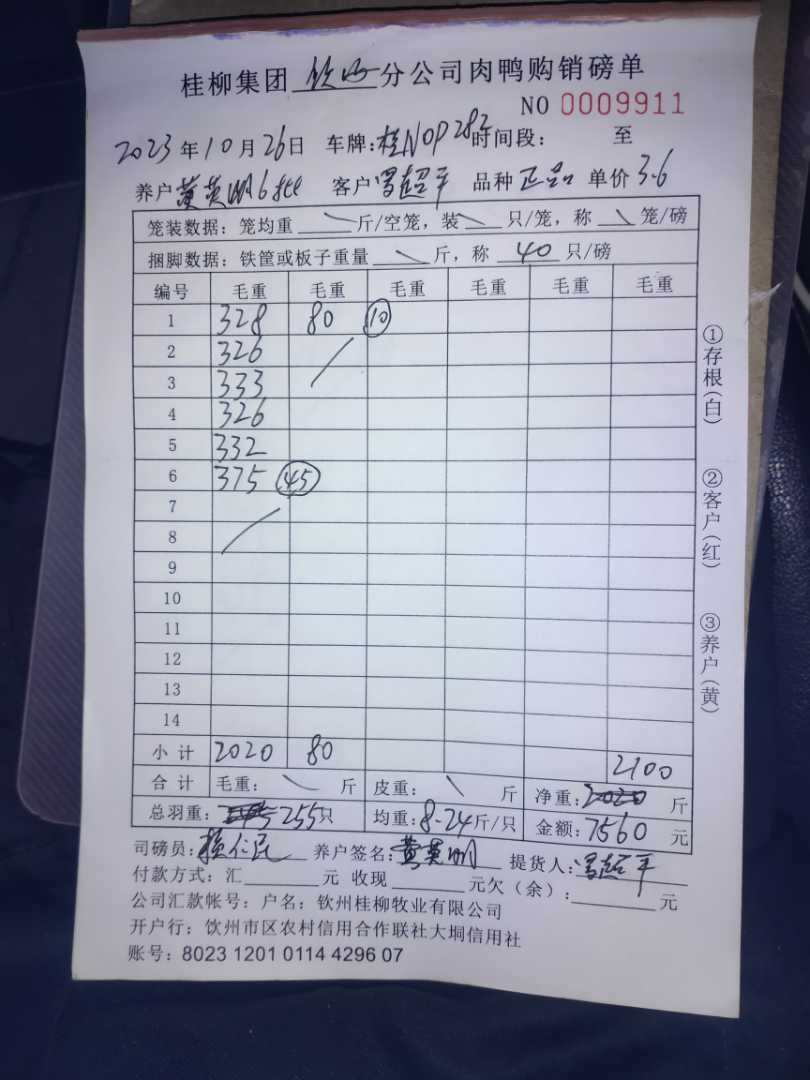 桂柳集团 钦州 分公司肉鸭购销磅单
NO 0009911
2023年10月26日 车牌:桂N0P282 时间段: 至
养户 黄英明 客户 冯超平 品种 正品 单价 3.6
笼装数据: 笼均重 斤/空笼, 装 只/笼, 称 笼/磅
捆脚数据: 铁筐或板子重量 斤, 称 40 只/磅
编号 毛重 毛重 毛重 毛重 毛重 毛重
1 328 80 10
2 326
3 333
4 326
5 332
6 375 45
7
8
9
10
11
12
13
14
小计 2020 80 2100
合计 毛重: 斤 皮重: 斤 净重: 2020 斤
总羽重: 255只 均重: 8-24斤/只 金额: 7560 元
司磅员: 养户签名: 黄英明 提货人: 冯超平
付款方式: 汇 元 收现 元欠(余): 元
公司汇款帐号: 户名: 钦州桂柳牧业有限公司
开户行: 钦州市区农村信用合作联社大垌信用社
账号: 8023 1201 0114 4296 07
①存根(白)
②客户(红)
③养户(黄)